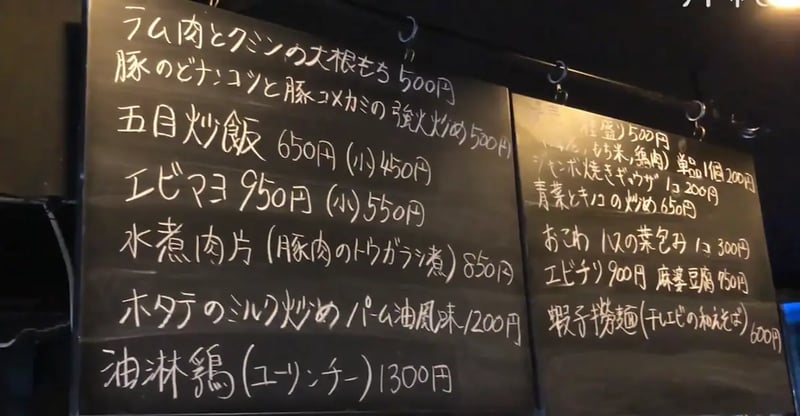 ラム肉とクミンの大根もち 500円
豚のどナンコツと豚コメカミの強火炒め 500円
五目炒飯 650円 (小)450円
エビマヨ 950円 (小)550円
水煮肉片 (豚肉のトウガラシ煮) 850円
ホタテのミルク炒め パーム油風味 1200円
油淋鶏 (ユーリンチー) 1300円
盛) 500円
もち米, 鶏肉) 単品1個200円
ジャンボ焼きギョウザ 1コ 200円
青菜とキノコの炒め 650円
おこわ ハスの葉包み 1コ 300円
エビチリ 900円 麻婆豆腐 750円
蝦子撈麺 (干しエビの和えそば) 600円